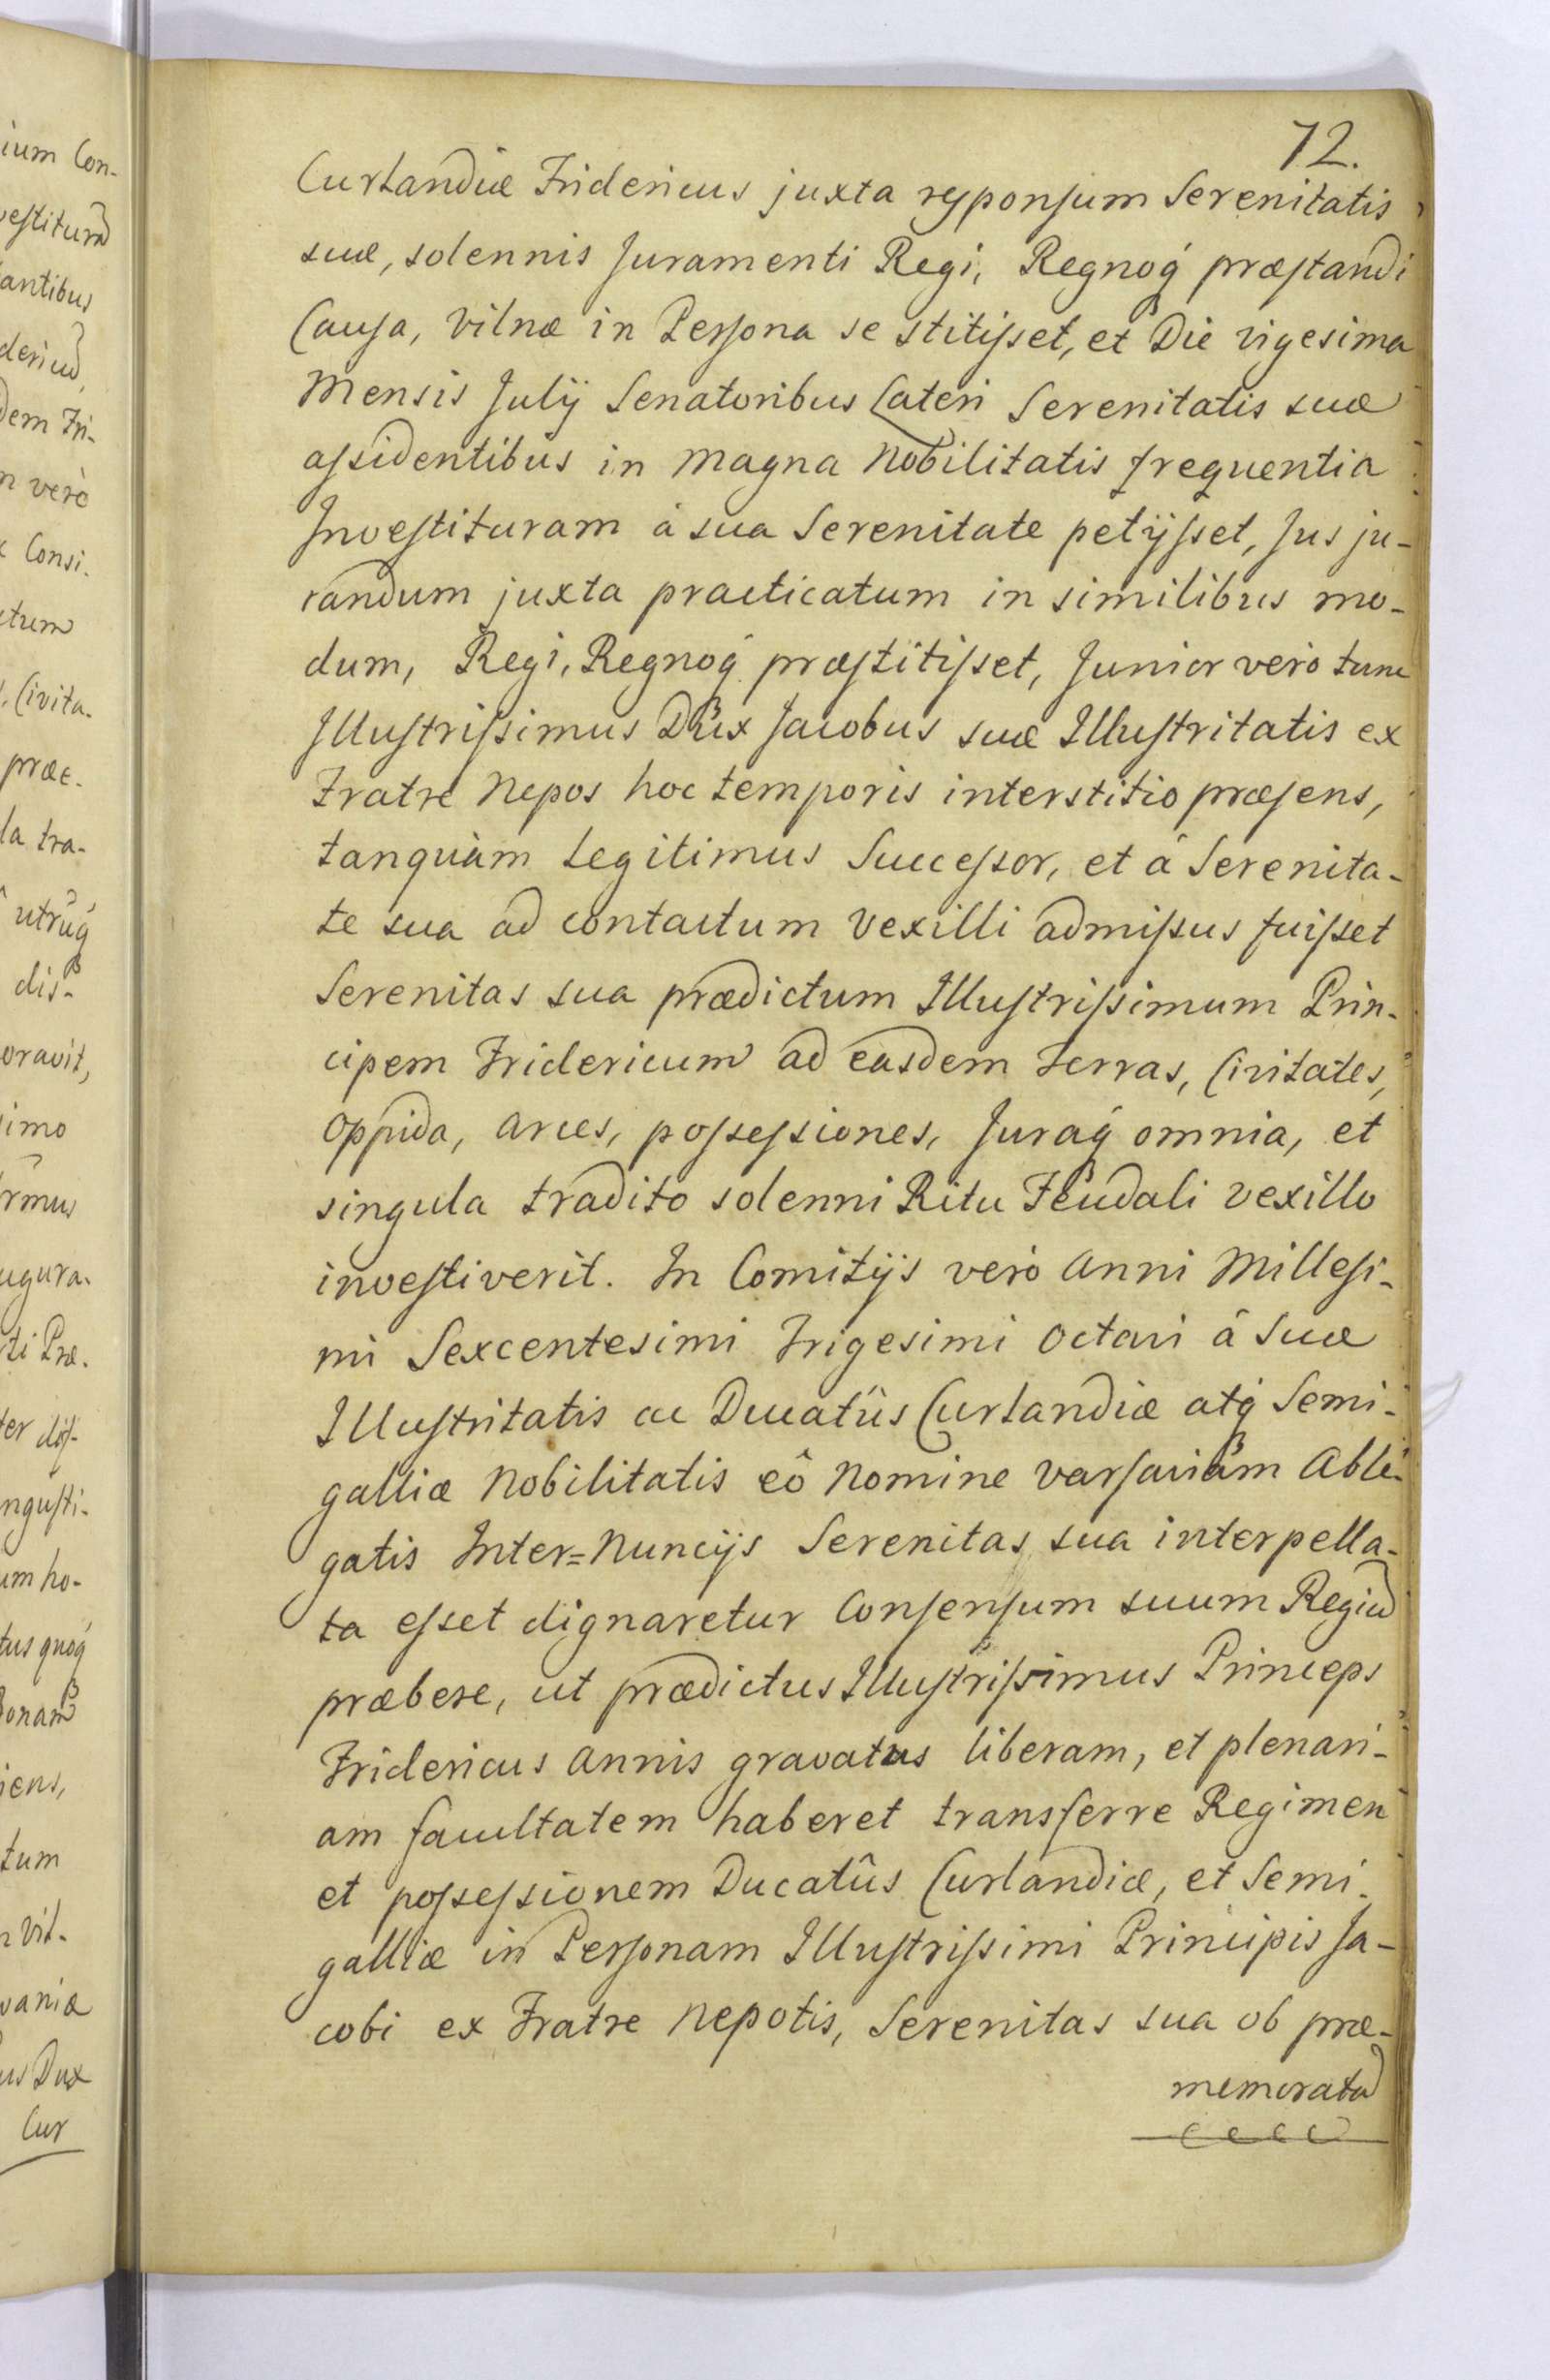 72.
Curlandiæ Fridericus juxta responsum Serenitatis
suæ, solennis Juramenti Regi, Regnoq́ præstandi
Causa, Vilnæ in Persona se stitisset, et Die vigesima
Mensis Julÿ Senatoribus Lateri Serenitatis suæ
assidentibus in magna Nobilitatis frequentia
Investituram á sua Serenitate petÿsset, Jus ju-
randum juxta practicatum in similibus mo-
dum, Regi, Regnoq́ præstitisset, Junior verò tunc
Illustrissimus Dux Jacobus suæ Illustritatis ex
Fratre Nepos hoc temporis interstitio præsens,
tanquàm Legitimus Successor, et á Serenita-
te sua ad contactum Vexilli admissus fuisset
Serenitas sua prædictum Illustrissimum Prin-
cipem Fridericum ad easdem Terras, Civitates,
Oppida, Arces, possessiones, Juraq́ omnia, et
singula tradito solenni Ritu Feudali vexillo
investiverit. In Comitÿs verò Anni Millesi-
mi Sexcentesimi Trigesimi Octavi á Suæ
Illustritatis ac Ducatûs Curlandiæ atq́ Semi-
galliæ Nobilitatis eô Nomine Varsaviam Able-
gatis Inter=Nuncÿs Serenitas sua interpella-
ta esset dignaretur Consensum suum Regiũ
præbere, ut prædictus Illustrissimus Princeps
Fridericus Annis gravatus liberam, et plenari-
am facultatem haberet transferre Regimen
et possessionem Ducatûs Curlandiæ, et Semi-
galliæ in Personam Illustrissimi Principis Ja-
cobi ex Fratre Nepotis, Serenitas sua ob præ-
memorata
ium Con-
vestiturã
antibus
dem Fri-
n verò
Consi-
ctum
Civita-
præe-
la tra-
utrũq́
dis-
oravit,
simo
ugura-
ti Præ-
ngusti-
um ho-
tus quoq́
sonam
iens,
tum
n Vil-
vaniæ
us Dux
Cur